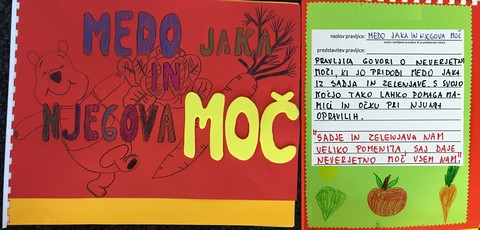 MEDO JAKA
IN
NJEGOVA
MOČ
naslov pravljice: MEDO JAKA IN NJEGOVA MOČ
predstavitev pravljice:
PRAVLJICA GOVORI O NEVERJETNI
MOČI, KI JO PRIDOBI MEDO JAKA
IZ SADJA IN ZELENJAVE. S SVOJO
MOČJO TAKO LAHKO POMAGA MA-
MICI IN OČKU PRI NJUNIH
OPRAVILIH.
"SADJE IN ZELENJAVA NAM
VELIKO POMENITA, SAJ DAJE
NEVERJETNO MOČ VSEM NAM."